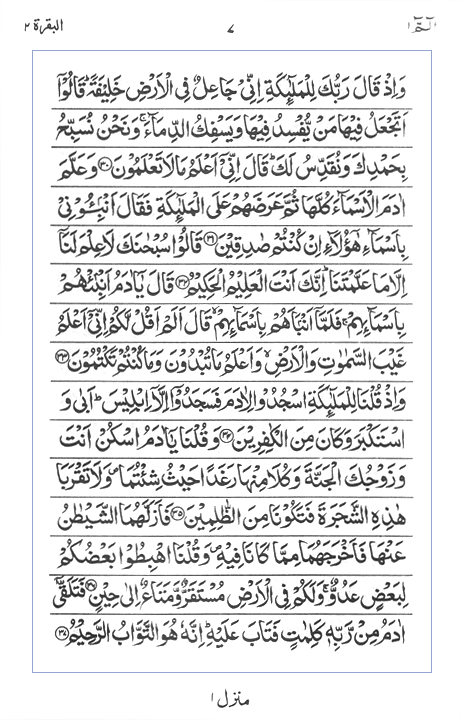 الٓمّٓ ١ ٧ البقرة ٢
وَاِذْ قَالَ رَبُّكَ لِلْمَلٰٓئِكَةِ اِنِّىْ جَاعِلٌ فِى الْاَرْضِ خَلِيْفَةً ؕ قَالُوْٓا
اَتَجْعَلُ فِيْهَا مَنْ يُّفْسِدُ فِيْهَا وَيَسْفِكُ الدِّمَآءَ ۚ وَنَحْنُ نُسَبِّحُ
بِحَمْدِكَ وَنُقَدِّسُ لَكَ ؕ قَالَ اِنِّىْٓ اَعْلَمُ مَا لَا تَعْلَمُوْنَ ﴿۳۰﴾ وَعَلَّمَ
اٰدَمَ الْاَسْمَآءَ كُلَّهَا ثُمَّ عَرَضَهُمْ عَلَى الْمَلٰٓئِكَةِ فَقَالَ اَنْۢبِـُٔوْنِىْ
بِاَسْمَآءِ هٰٓؤُلَآءِ اِنْ كُنْتُمْ صٰدِقِيْنَ ﴿۳۱﴾ قَالُوْا سُبْحٰنَكَ لَا عِلْمَ لَنَآ
اِلَّا مَا عَلَّمْتَنَا ؕ اِنَّكَ اَنْتَ الْعَلِيْمُ الْحَكِيْمُ ﴿۳۲﴾ قَالَ يٰٓاٰدَمُ اَنْۢبِئْهُمْ
بِاَسْمَآئِهِمْ ۚ فَلَمَّآ اَنْۢبَاَهُمْ بِاَسْمَآئِهِمْ ۙ قَالَ اَلَمْ اَقُلْ لَّكُمْ اِنِّىْٓ اَعْلَمُ
غَيْبَ السَّمٰوٰتِ وَالْاَرْضِ ۙ وَاَعْلَمُ مَا تُبْدُوْنَ وَمَا كُنْتُمْ تَكْتُمُوْنَ ﴿۳۳﴾
وَاِذْ قُلْنَا لِلْمَلٰٓئِكَةِ اسْجُدُوْا لِاٰدَمَ فَسَجَدُوْٓا اِلَّآ اِبْلِيْسَ ؕ اَبٰى وَ
اسْتَكْبَرَ وَكَانَ مِنَ الْكٰفِرِيْنَ ﴿۳۴﴾ وَقُلْنَا يٰٓاٰدَمُ اسْكُنْ اَنْتَ
وَزَوْجُكَ الْجَنَّةَ وَكُلَا مِنْهَا رَغَدًا حَيْثُ شِئْتُمَا ۪ وَلَا تَقْرَبَا
هٰذِهِ الشَّجَرَةَ فَتَكُوْنَا مِنَ الظّٰلِمِيْنَ ﴿۳۵﴾ فَاَزَلَّهُمَا الشَّيْطٰنُ
عَنْهَا فَاَخْرَجَهُمَا مِمَّا كَانَا فِيْهِ ۪ وَقُلْنَا اهْبِطُوْا بَعْضُكُمْ
لِبَعْضٍ عَدُوٌّ ۚ وَلَكُمْ فِى الْاَرْضِ مُسْتَقَرٌّ وَّمَتَاعٌ اِلٰى حِيْنٍ ﴿۳۶﴾ فَتَلَقّٰٓى
اٰدَمُ مِنْ رَّبِّهٖ كَلِمٰتٍ فَتَابَ عَلَيْهِ ؕ اِنَّهٗ هُوَ التَّوَّابُ الرَّحِيْمُ ﴿۳۷﴾
منزل ١